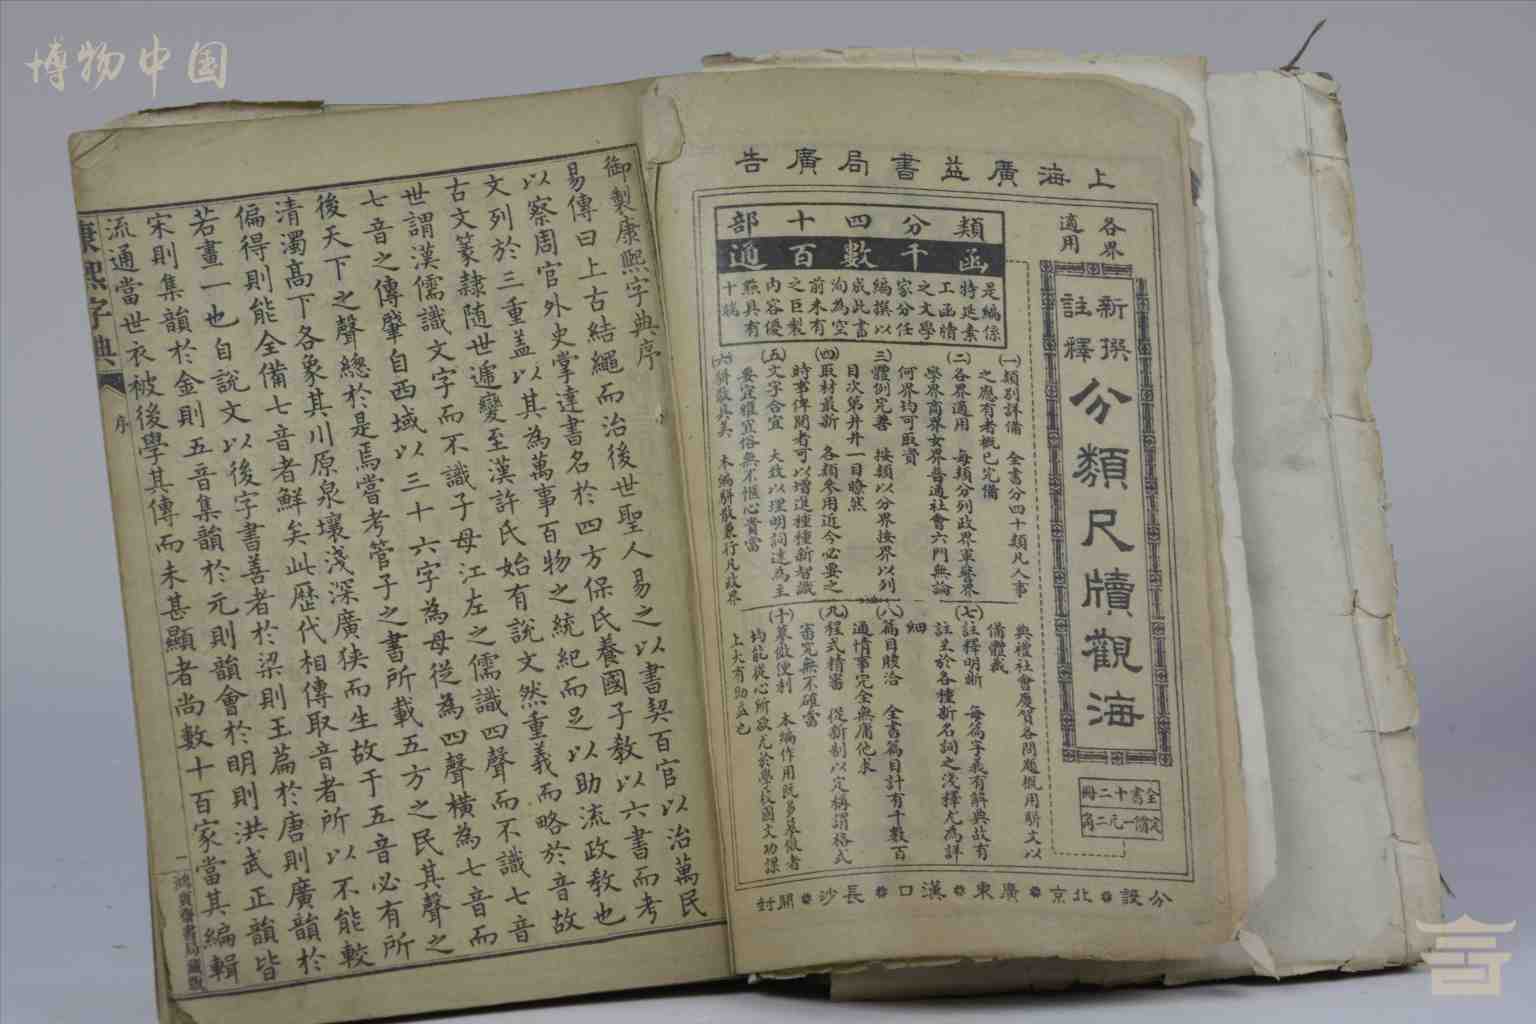 博物中国
上海廣益書局廣告
各界
適用
新撰
註釋
分類尺牘觀海
全書十二冊
定價一元二角
類分四十部
函千數百通
是編係
特延素
工函牘
之文學
家分任
編撰以
成此書
洵為空
前未有
之巨製
內容優
點具有
十端
(一)類別詳備　全書分四十類凡人事
之應有者概已完備
(二)各界適用　每類分列政界軍警界
學界商界女界普通社會六門無論
何界均可取資
(三)體例完善　按類以分界按界以列
目次第井井一目瞭然
(四)取材最新　各類參用近今必要之
時事俾閱者可以增進種種新智識
(五)文字合宜　大致以理明詞達為主
要宜雅宜俗無不愜心貴當
(六)駢散具美　本編駢散兼行凡政界
典禮社會慶賀各問題概用駢文以
備體裁
(七)註釋明晰　每篇字義有解典故有
註至於各種新名詞之淺釋尤為詳
細
(八)篇目賅洽　全書篇目計有千數百
通情事完全無庸他求
(九)程式精審　從新制以定稱謂格式
審究無不確當
(十)摹倣便利　本編作用既多摹倣者
均能從心所欲尤於學校國文功課
上大有助益也
分設　北京　廣東　漢口　長沙　開封
御製康熙字典序
易傳曰上古結繩而治後世聖人易之以書契百官以治萬民
以察周官外史掌達書名於四方保氏養國子教以六書而考
文列於三重蓋以其為萬事百物之統紀而足以助流政教也
古文篆隸隨世遞變至漢許氏始有說文然重義而略於音故
世謂漢儒識文字而不識子母江左之儒識四聲而不識七音
七音之傳肇自西域以三十六字為母從為四聲橫為七音而
後天下之聲總於是焉嘗考管子之書所載五方之民其聲之
清濁高下各象其川原泉壤淺深廣狹而生故于五音必有所
偏得則能全備七音者鮮矣此歷代相傳取音者所以不能較
若畫一也自說文以後字書善者於梁則玉篇於唐則廣韻於
宋則集韻於金則五音集韻於元則韻會於明則洪武正韻皆
流通當世衣被後學其傳而未甚顯者尚數十百家當其編輯
康熙字典
序
一
鴻寶齋書局藏版